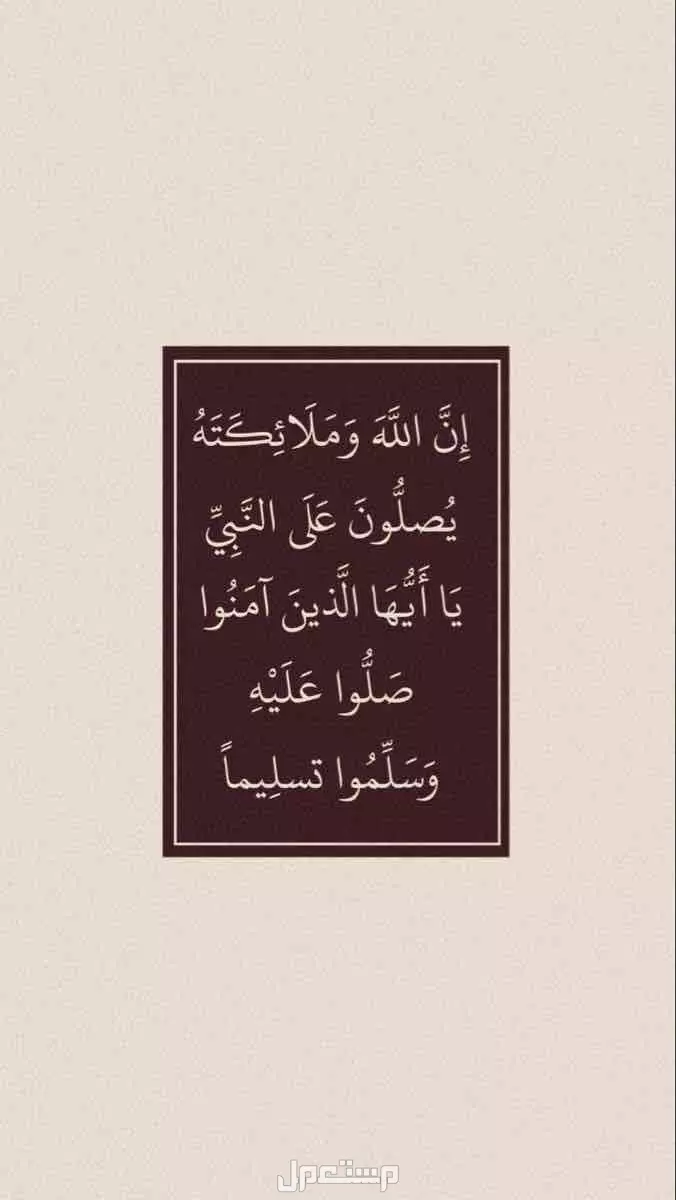 إِنَّ اللَّهَ وَمَلَائِكَتَهُ
يُصلُّونَ عَلَى النَّبِيِّ
يَا أَيُّهَا الَّذينَ آمَنُوا
صَلُّوا عَلَيْهِ
وَسَلِّمُوا تسلِيماً
مستعمل